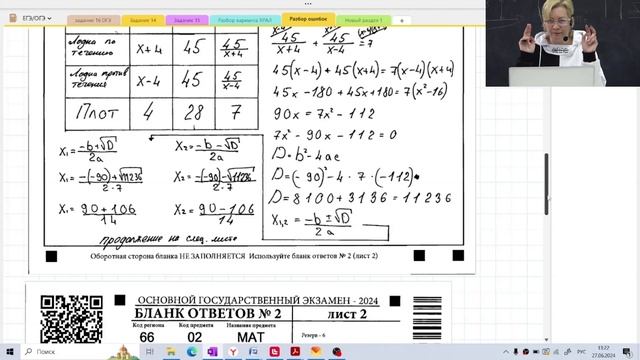 ЕГЭ/ОГЭ
задание 16 ОГЭ
Задание 14
Задание 15
Разбор варианта УРАЛ
Разбор ошибок
Новый раздел 1
Лодка по течению
x+4
45
45/(x+4)
Лодка против течения
x-4
45
45/(x-4)
Плот
4
28
7
45/(x+4) + 45/(x-4) = 7
45(x-4)+45(x+4)=7(x-4)(x+4)
45x-180+45x+180=7(x²-16)
90x=7x²-112
7x²-90x-112=0
D=b²-4ac
D=(-90)²-4·7·(-112)
D=8100+3136=11236
x₁,₂ = (-b±√D)/2a
x₁=(-b+√D)/2a
x₂=(-b-√D)/2a
x₁=(-(-90)+√11236)/(2·7)
x₂=(-(-90)-√11236)/(2·7)
x₁=(90+106)/14
x₂=(90-106)/14
продолжение на след. листе
Оборотная сторона бланка НЕ ЗАПОЛНЯЕТСЯ Используйте бланк ответов № 2 (лист 2)
ОСНОВНОЙ ГОСУДАРСТВЕННЫЙ ЭКЗАМЕН - 2024
БЛАНК ОТВЕТОВ № 2
лист 2
Код региона
Код предмета
Название предмета
Резерв - 6
66
02
МАТ
Поиск
РУС
11:27
27.06.2024